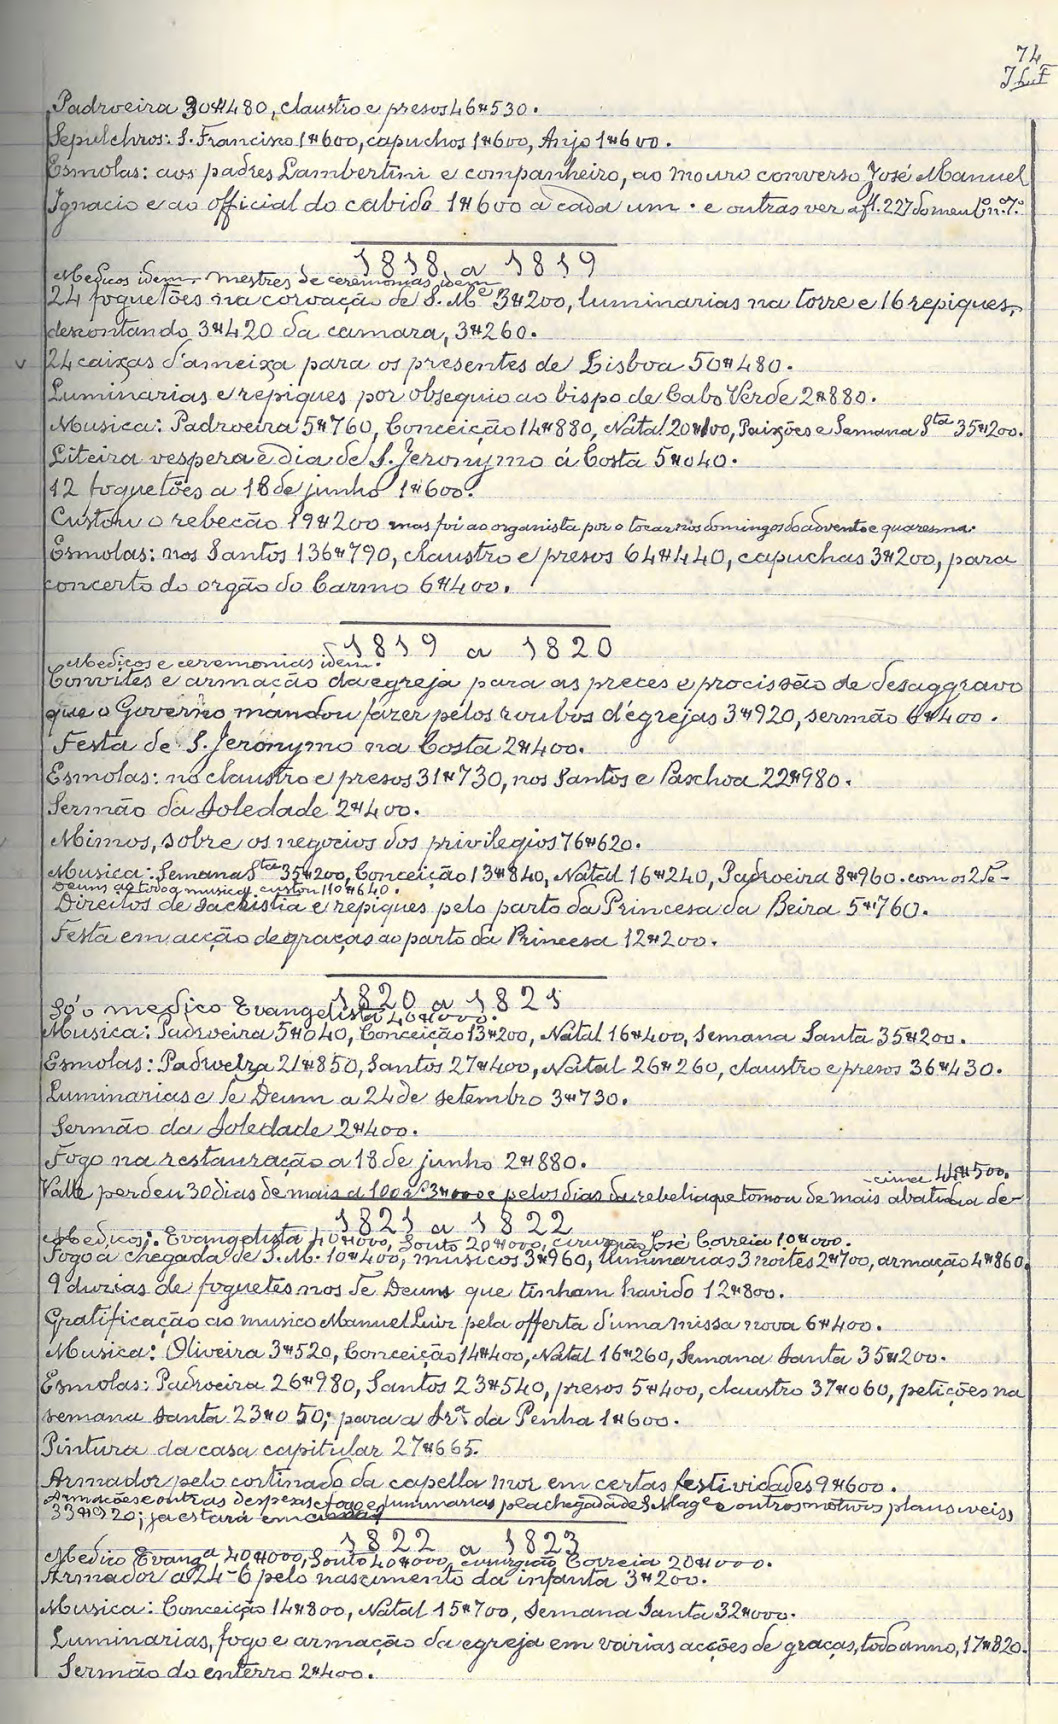 74
J L. F
Padroeira 30#480, claustro e presos 46#530.
Sepulchros: S. Francisco 1#600, capuchos 1#600, Anjo 1#600.
Esmolas: aos padres Lambertini e companheiro, ao mouro converso José Manuel
Ignacio e ao official do cabido 1#600 a cada um. e outras ver a fl. 227 do
1818 a 1819
Medicos idem. mestres de ceremonias idem
24 foguetões na coroação de S. Mᵉ 3#200, luminarias na torre e 16 repiques,
descontando 3#420 da camara, 3#260.
v 24 caixas d'ameixa para os presentes de Lisboa 50#480.
Luminarias e repiques por obsequio ao bispo de Cabo Verde 2#880.
Musica: Padroeira 5#760, Conceição 14#880, Natal 20#100, Paixões e Semana Sᵗᵃ 35#200.
Liteira vespera e dia de S. Jeronymo á Costa 5#040.
12 foguetões a 18 de junho 1#600.
Custou o rebecão 19#200 mas foi ao organista por o tocar nos domingos do advento e quaresma.
Esmolas: nos Santos 136#790, claustro e presos 64#440, capuchas 3#200, para
concerto do orgão do Carmo 6#400.
1819 a 1820
Medicos e ceremonias idem.
Convites e armação da egreja para as preces e procissão de desaggravo
que o Governo mandou fazer pelos roubos d'egrejas 3#920, sermão 6#400.
Festa de S. Jeronymo na Costa 2#400.
Esmolas: no claustro e presos 31#730, nos Santos e Paschoa 22#980.
Sermão da Soledade 2#400.
Mimos, sobre os negocios dos privilegios 76#620.
Musica: Semana Sᵗᵃ 35#200, Conceição 13#840, Natal 16#240, Padroeira 8#960. com os 2 Te-
Deuns ao todo a musica, custou 110#640.
Direitos de sachristia e repiques pelo parto da Princesa da Beira 5#760.
Festa em acção de graças ao parto da Princesa 12#200.
1820 a 1821
Só o medico Evangelista 40#000.
Musica: Padroeira 5#040, Conceição 13#200, Natal 16#400, Semana Santa 35#200.
Esmolas: Padroeira 21#850, Santos 27#400, Natal 26#260, claustro e presos 36#430.
Luminarias e Te Deum a 24 de setembro 3#730.
Sermão da Soledade 2#400.
Fogo na restauração a 18 de junho 2#880.
cima 44#500.
Valle perdeu 30 dias de mais a 100 rˢ 3#000 e pelos dias da que tomou de mais abatida de-
1821 a 1822
Medicos: Evangelista 40#000, Souto 20#000, cirurgião José Correia 10#000.
Fogo á chegada de S. M. 10#400, musicos 3#960, luminarias 3 noites 2#700, armação 4#860,
9 duzias de foguetes nos Te Deuns que tinham havido 12#800.
Gratificação ao musico Manuel Luiz pela offerta d'uma missa nova 6#400.
Musica: Oliveira 3#520, Conceição 14#400, Natal 16#260, Semana Santa 35#200.
Esmolas: Padroeira 26#980, Santos 23#540, presos 5#400, claustro 37#060, petições na
semana santa 23#050; para a Srᵃ da Penha 1#600.
Pintura da casa capitular 27#665.
Armador pelo cortinado da capella mor em certas festividades 9#600.
Armações e outras despesas fogo e luminarias pela chegada de S. Magᵉ e outros motivos plausiveis,
33#920; ja estará em cima
1822 a 1823
Medico Evangᵃ 40#000, Souto 40#000, cirurgião Correia 20#000.
Armador a 24-6 pelo nascimento da infanta 3#200.
Musica: Conceição 14#800, Natal 15#700, Semana Santa 32#000.
Luminarias, fogo e armação da egreja em varias acções de graças, todo anno, 17#820.
Sermão do enterro 2#400.